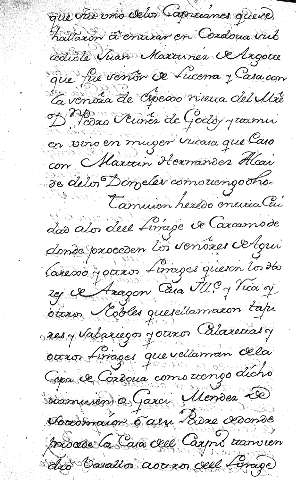 que fue uno de los Capitanes que se
hallaron a en Cordova
Juan Martinez de Argote
que fue señor de Lucena y Casa con
la señora de Espejo nieua del
Dn Pedro Nuñes de Godoy y tamvi
en vino en muger su casa que Caso
con Martin Hernandez Alcai
de de los Donzeles como tengo dho
tamvien heredo en esta Ciu
dad a los del linage de Carcamo de
donde proceden los señores de Agui
larejo y otros linages que son los
de Aragon Casa Yll.e y Rica y
otros Nobles que se llamaron tafu
res y y otros
otros linages que se llaman de la
Cepa de Cordova como tengo dicho
tamvien a Garci Mendez de
Sotomaior o a su Padre de donde
la Casa del Carpio tamvien
dio Vasallos a otros del linage